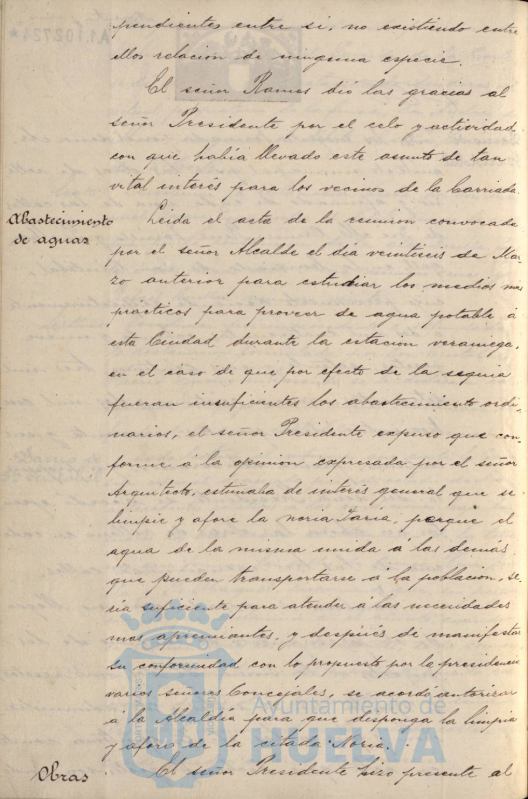 pendientes entre si, no existiendo entre
ellos relacion de ninguna especie.
El señor Ramos dió las gracias al
señor Presidente por el celo y actividad
con que habia llevado este asunto de tan
vital interés para los vecinos de la barriada.
Abastecimiento
de aguas
Leida el acta de la reunion convocada
por el señor Alcalde el dia veintiseis de Mar-
zo anterior para estudiar los medios mas
practicos para proveer de agua potable á
esta Ciudad durante la estacion veraniega,
en el caso de que por efecto de la sequia
fueran insuficientes los abastecimiento ordi-
narios, el señor Presidente expuso que con-
forme á la opinion expresada por el señor
Arquitecto, estimaba de interés general que se
limpie y afore la noria, porque el
agua de la misma unida á las demás
que pueden transportarse á la poblacion, se-
ria suficiente para atender á las necesidades
mas apremiantes, y después de manifestar
su conformidad con lo propuesto por la presidencia
varios señores Concejales, se acordó autorizar
á la Alcaldia para que disponga la limpia
y aforo de la citada Noria.
Obras
El señor Presidente hizo presente al
A1.102724*
Ayuntamiento de
HUELVA